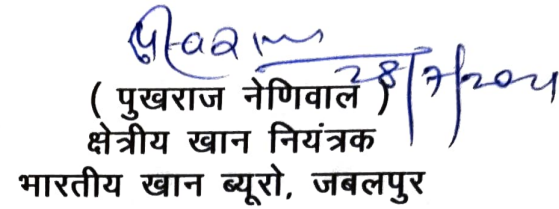 28/7/2021
( पुखराज नेणिवाल )
क्षेत्रीय खान नियंत्रक
भारतीय खान ब्यूरो, जबलपुर